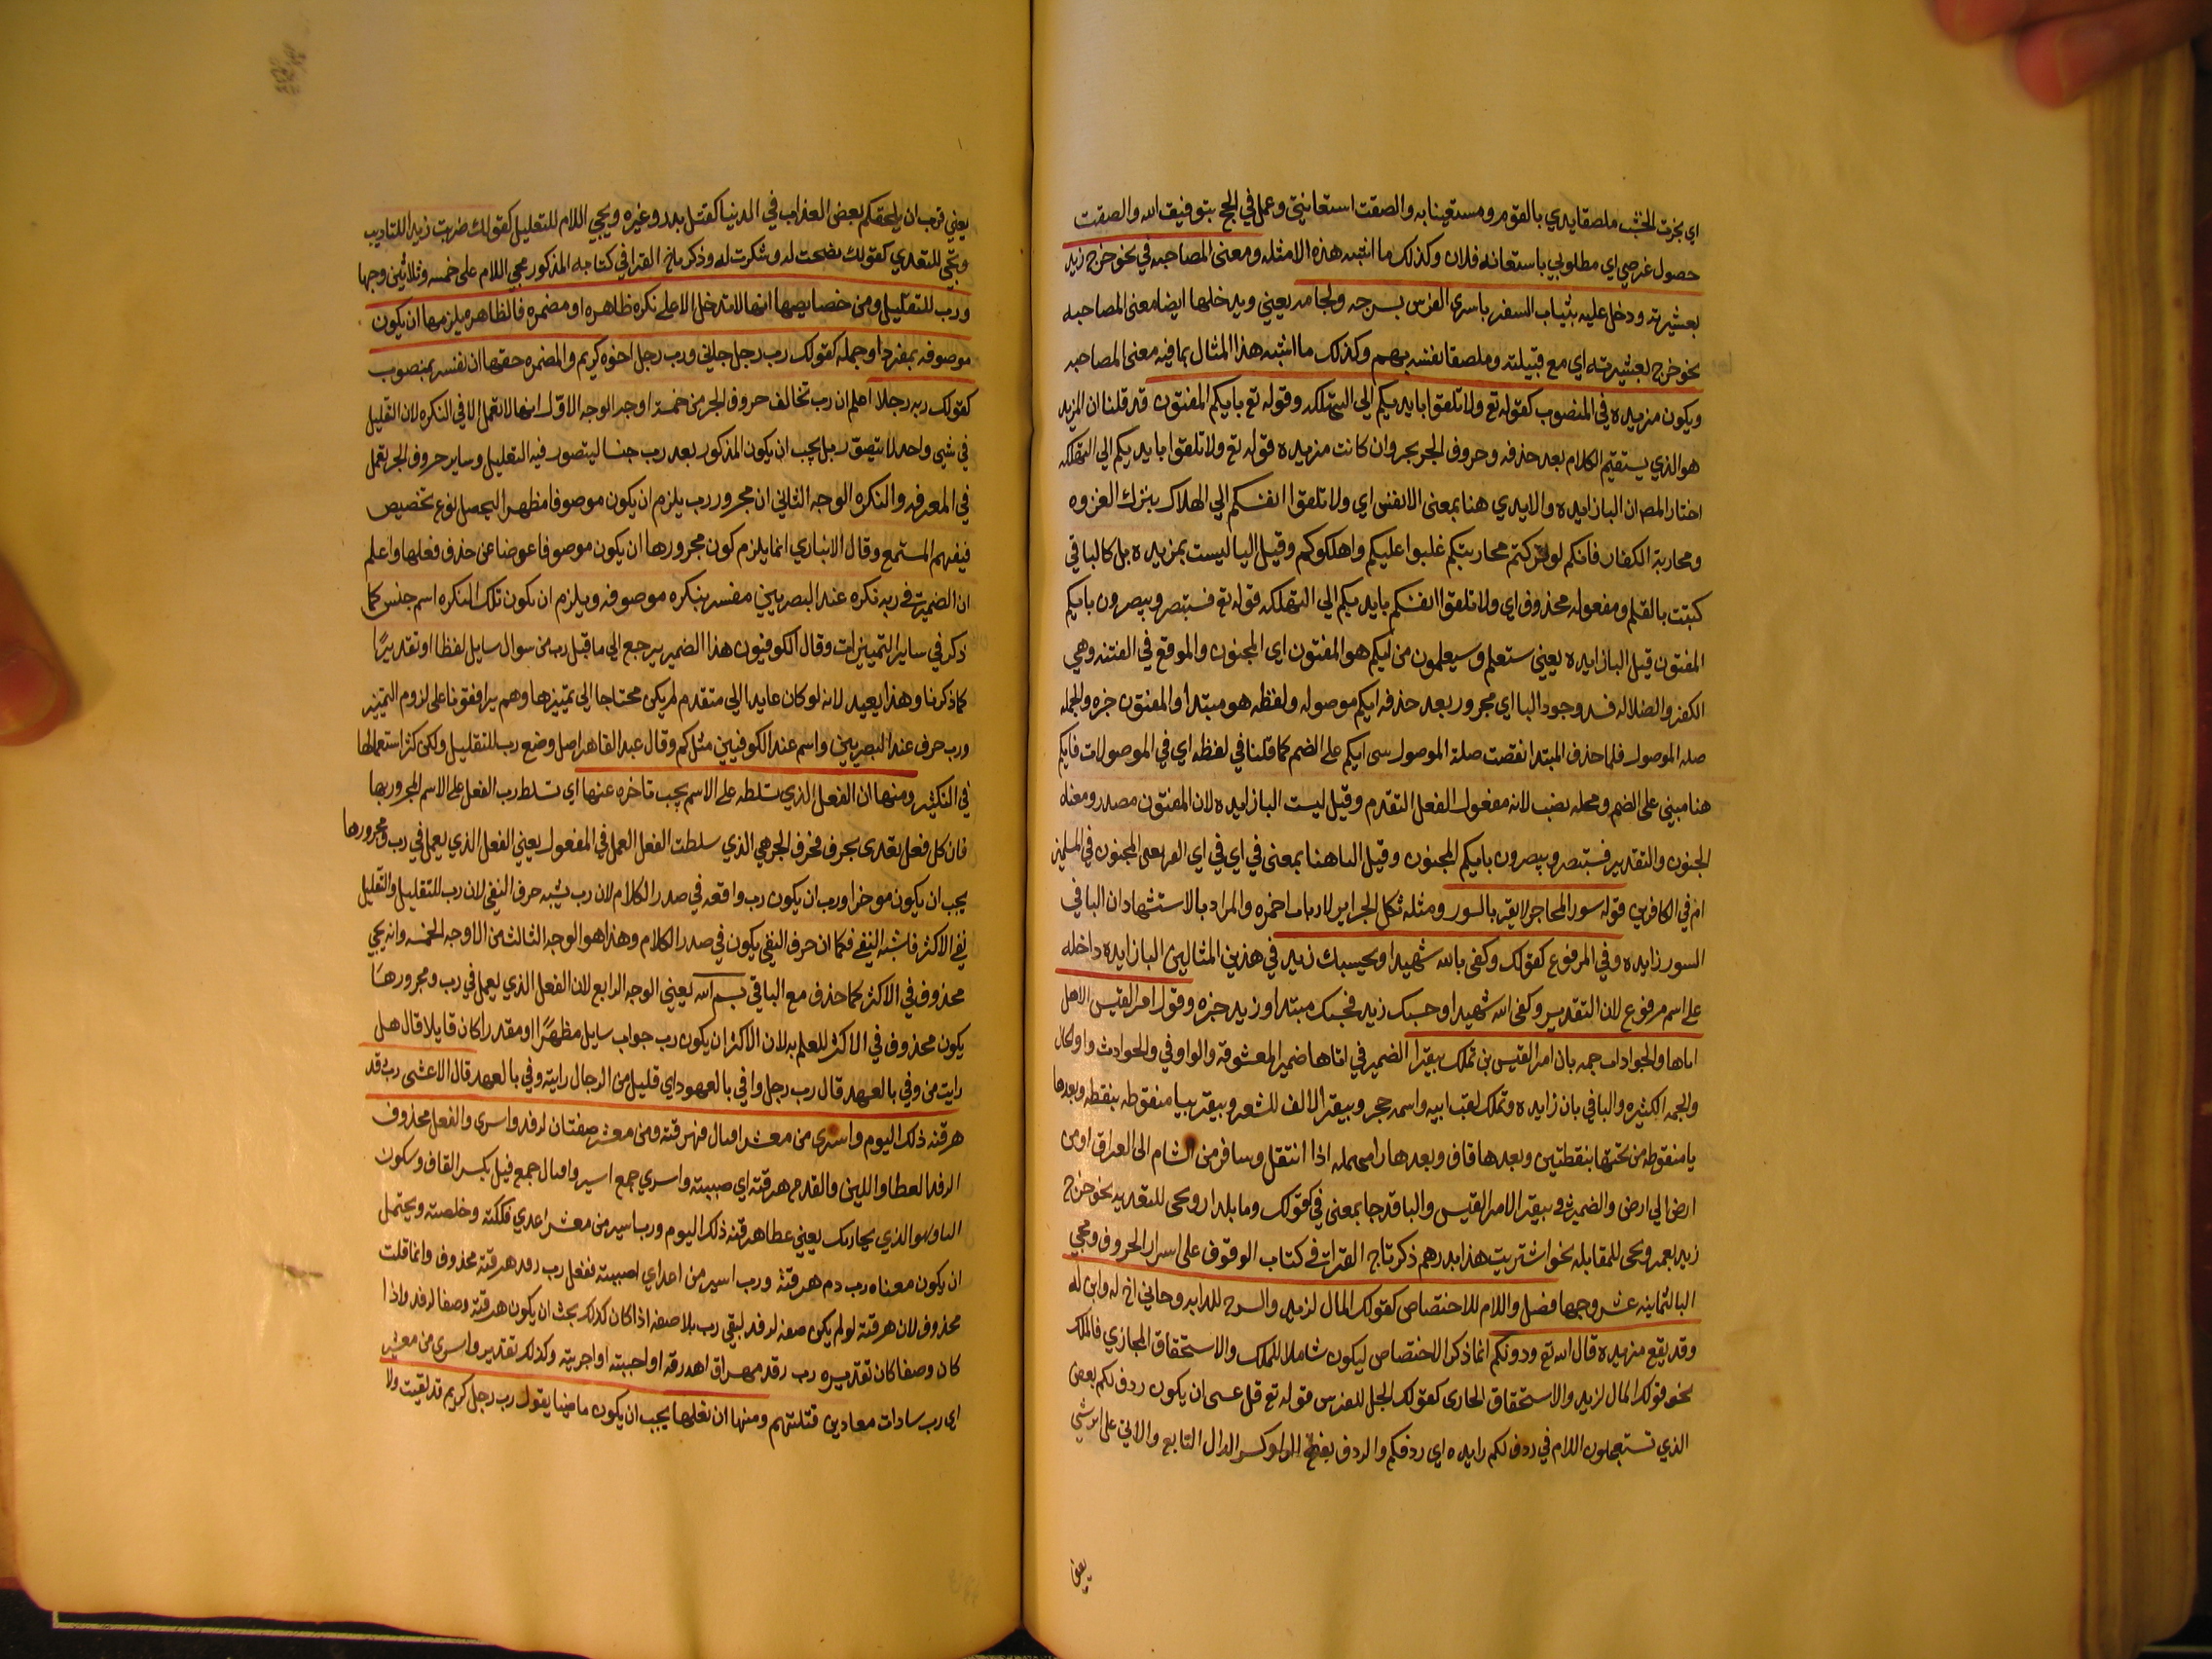 اي نجرت الخشب ملصقا يدي بالقدوم ومستعينا به والصقت استعانتي وعملي في الحج بتوفيق الله والصقت
حصول غرضي اي مطلوبي باستعانه فلان وكذلك ما اشبه هذه الامثله ومعنى المصاحبه في نحو خرج زيد
بعشيرته ودخل عليه بثياب السفر باسرى الفرس بسرجه ولجامه يعني ويدخلها ايضا معنى المصاحبه
نحو خرج بعشيرته اي مع قبيلته وملصقا نفسه بهم وكذلك ما اشبه هذا المثال بما فيه معنى المصاحبه
ويكون مزيده في المنصوب كقوله تع ولا تلقوا بايديكم الى التهلكه وقوله تع بايكم المفتون قد قلنا ان المزيد
هو الذي يستقيم الكلام بعد حذفه وحروف الجر يجر وان كانت مزيده قوله تع ولا تلقوا بايديكم الي التهلكه
اختار المص ان البا زايده والايدي هنا بمعنى الانفس اي ولا تلقوا انفسكم الي الهلاك بترك الغزوه
ومحاربة الكفار فانكم لو تركتم محاربتكم غلبوا عليكم واهلكوكم وقيل البا ليست بمزيده بل كالبا في
كتبت بالقلم ومفعوله محذوف اي ولا تلقوا انفسكم بايديكم الي التهلكه قوله تع فستبصر ويبصرون بايكم
المفتون قيل البا زايده يعني ستعلم وسيعلمون من ايكم هو المفتون اي المجنون والموقع في الفتنه وهي
الكفر والضلاله فسد وجود البا اي مجرور بعد حذفه ايكم موصوله ولفظه هو مبتدا والمفتون خبره والجمله
صله الموصول فلما حذف المبتدا نقصت صلة الموصول بني ايكم على الضم كما قلنا في لفظه اي في الموصولات فايكم
هنا مبني على الضم ومحله نصب لانه مفعول الفعل المتقدم وقيل ليست البا زايده لان المفتون مصدر ومعناه
الجنون والتقدير فستبصر ويبصرون بايكم الجنون وقيل البا هنا بمعنى في اي في اي الفريقين المجنون في المسلمين
ام في الكافرين قوله سود المحاجر لا يقران بالسور ومثله تلك الحراير لا ربات احمره والمراد بالاستشهاد ان البا في
السور زايده وفي المرفوع كقولك وكفى بالله شهيدا وبحسبك زيد في هذين المثالين البا زايده داخله
على اسم مرفوع لان التقدير وكفى الله شهيدا وحسبك زيد فحسبك مبتدا وزيد خبره وقول امر القيس الا هل
اتاها والحوادث جمه بان امر القيس بن تملك بيقرا الضمير في اتاها ضمير المعشوقه والواو في والحوادث واو الحال
والجمه الكثيره والبا في بان زايده وتملك لقب ابيه واسمه حجر وبيقر الالف للشعر وبيقر ببا منقوطه بنقطه وبعدها
يا منقوطه من تحتها بنقطتين وبعدها قاف وبعدها را مهمله اذا انتقل وسافر من الشام الى العراق او من
ارض الي ارض والضمير في بيقرا لامر القيس والبا قد جا بمعنى في كقولك وما بلدار ويجى للتعديه نحو خرج
زيد بعمرو ويجى للمقابله نحو اشتريت هذا بدرهم ذكر تاج القرات في كتاب الوقوف على اسرار الحروف ومجي
البا لثمانيه عشر وجها فصل واللام للاختصاص كقولك المال لزيد والسرج للدابه وجاني اخ له وابن له
وقد يقع مزيده قال الله تع ردف لكم انما ذكر الاختصاص ليكون شاملا للملك والاستحقاق المجازي فالملك
نحو قولك المال لزيد والاستحقاق المجازى كقولك الجل للفرس قوله تع قل عسى ان يكون ردف لكم بعض
الذي تستعجلون اللام في ردف لكم زايده اي ردفكم والردف بفتح الرا وكسر الدال التابع والاتي على اثر شي
يعني
يعني قرب ان يلحقكم بعض العذاب في الدنيا كقتل بدر وغيره ويجي اللام للتعليل كقولك ضربت زيدا للتاديب
وتجي للتعدي كقولك نصحت له وشكرت له وذكر تاج القرا في كتابه المذكور مجي اللام على خمسه وثلاثين وجها
ورب للتقليل ومن خصايصها انها لا تدخل الا على نكره ظاهره او مضمره فالظاهره يلزمها ان يكون
موصوفه بمفرد او جمله كقولك رب رجل جاني ورب رجل اخوه كريم والمضمره حقها ان تفسر بمنصوب
كقولك ربه رجلا اعلم ان رب تخالف حروف الجر من خمسة اوجه الوجه الاول انها لا تعمل الا في النكره لان التقليل
في شي واحد لا يتصور بل يجب ان يكون المذكور بعد رب جنسا ليتصور فيه التقليل وساير حروف الجر يعمل
في المعرفه والنكره الوجه الثاني ان مجرور رب يلزم ان يكون موصوفا مظهرا ليحصل نوع تخصيص
فيفهم المستمع وقال الانباري انما يلزم كون مجرورها ان يكون موصوفا عوضا عن حذف فعلها واعلم
ان الضمير في ربه نكره عند البصريين مفسر بنكره موصوفه ويلزم ان تكون تلك النكره اسم جنس كما
ذكر في ساير التميزات وقال الكوفيون هذا الضمير يرجع الي ما قبل رب من سوال سايل لفظا او تقديرا
كما ذكرنا وهذا بعيد لانه لو كان عايدا الي متقدم لم يكن محتاجا الى تميزها وهم يرافقونا على لزوم التميز
ورب حرف عند البصريين واسم عند الكوفيين مثل كم وقال عبد القاهر اصل وضع رب للتقليل ولكن كثر استعمالها
في التكثير ومنها ان الفعل الذي تسلطه على الاسم يجب تاخره عنها اي تسلط رب الفعل على الاسم المجرور بها
فان كل فعل تعدى بحرف فحرف الجر هي الذي سلطت الفعل العمل في المفعول يعني الفعل الذي يعمل في رب ومجرورها
يجب ان يكون موخرا ورب ان يكون رب واقعه في صدر الكلام لان رب يشبه حرف النفي لان رب للتقليل والتقليل
نفي الاكثر فاشبه النفي فكما ان حرف النفي يكون في صدر الكلام وهذا هو الوجه الثالث من الاوجه الخمسه وانه يجي
محذوف في الاكثر كما حذف مع البا في بسم الله يعني الوجه الرابع لان الفعل الذي يعمل في رب ومجرورها
يكون محذوف في الاكثر للعلم به لان الاكثر ان يكون رب جواب سايل مظهرا او مقدرا كان قايلا قال هل
رايت من وفي بالعهد قال رب رجل وافي بالعهود اي قليل من الرجال رايته وفي بالعهد قال الاعشى رب رفد
هرقته ذلك اليوم واسرى من معشر اقيال فهرقته ومن معشر صفتان لرفد واسرى والفعل محذوف
الرفد العطا واللبن والقدح هرقته اي صببته واسري جمع اسير واقيال جمع قيل بكسر القاف وسكون
اليا وهو الذي يحاربك يعني عطا هرقته ذلك اليوم ورب اسير من معشر اعدي فككته وخلصته ويحتمل
ان يكون معناه رب دم هرقته ورب اسير من اعداي اصببته ففعل رب رفد هرقته محذوف وانما قلت
محذوف لان هرقته لو لم يكن صفه لرفد لبقي رب بلا صفه اذا كان كذلك يجب ان يكون هرقته وصفا لرفد واذا
كان وصفا كان تقديره رب رفد مهراق اهدرقه او احببته او اجريته وكذلك تقدير واسرى من معشر
اي رب سادات معادين قتلتهم ومنها ان فعلها يجب ان يكون ماضيا يقول رب رجل كريم قد لقيت ولا